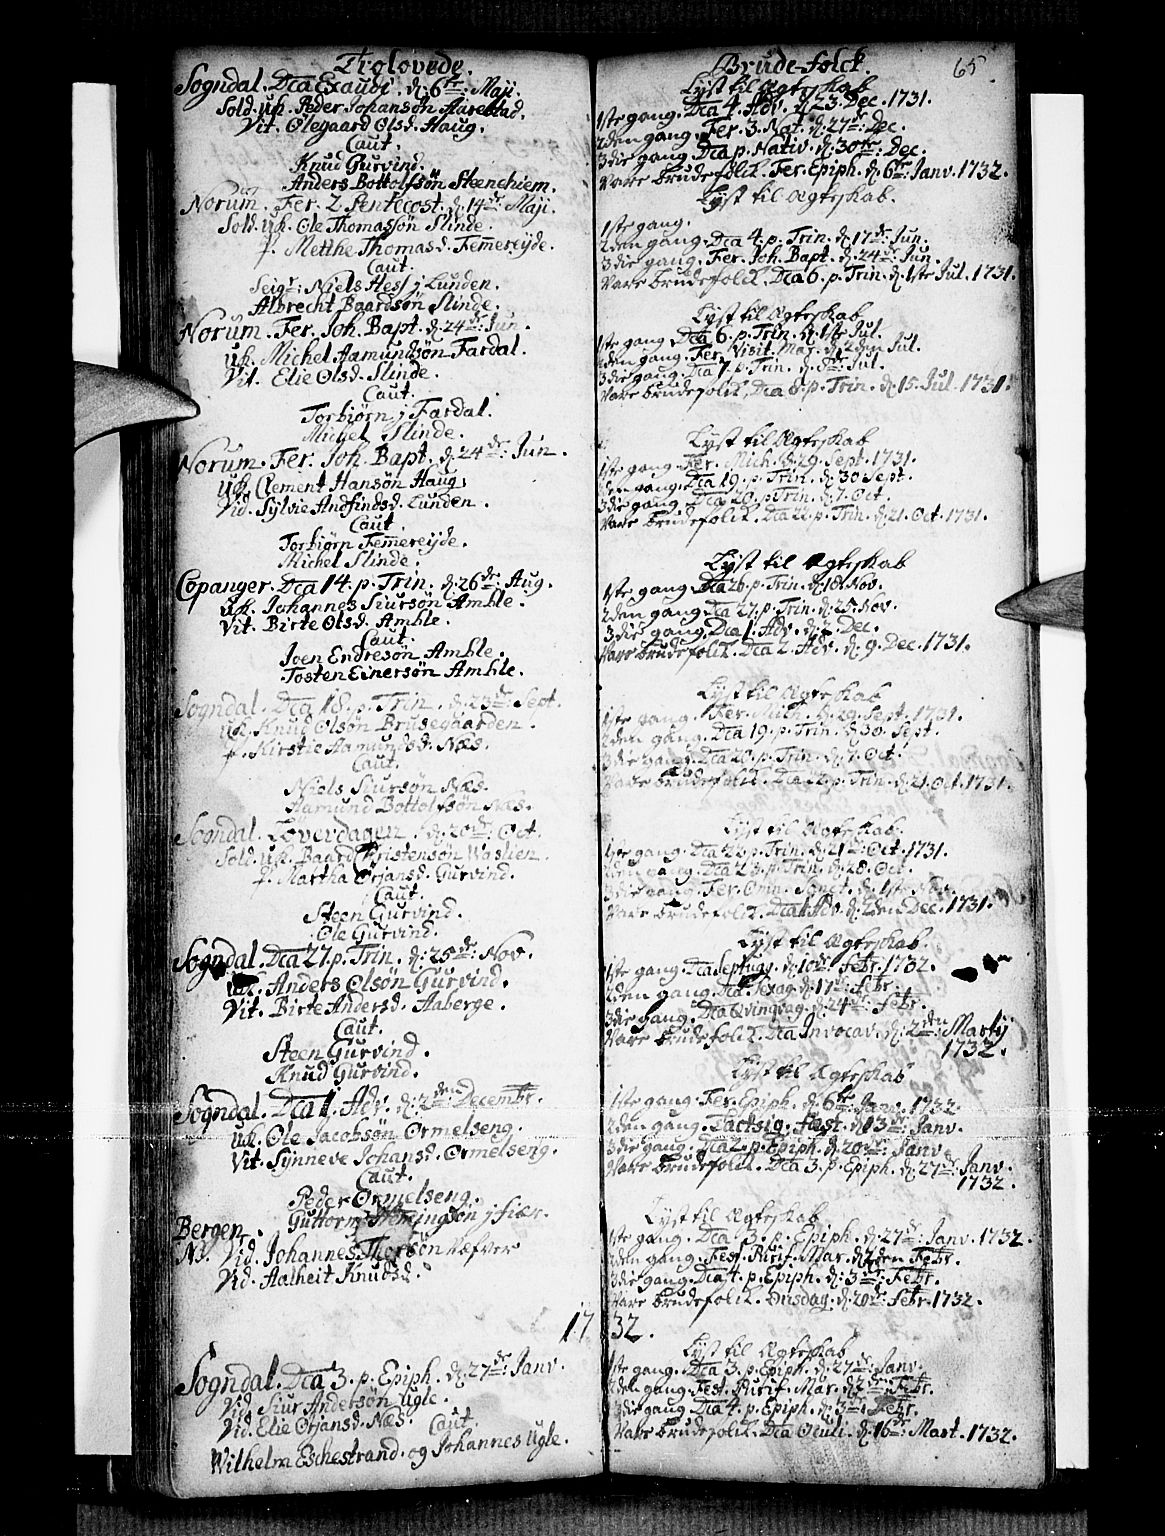 Trolovede.
Sogndal. Dca Exaudi. d. 6te: Maji.
Sold. uk. Peder Johansøn Aarestad.
Vit. Olegaard Olsd. Haug.
Caut.
Knud Gurvind
Anders Bottolfsøn Steenehiem.
Norum. Fer. 2. Pentecost. d. 14de Maji.
Sold. uk. Ole Thomassøn Slinde.
p. Metthe Thomasd. Femmereyde.
Caut.
Seigr: Niels Hess j Lunden.
Albrecht Baardsøn Slinde.
Norum. Fer. Joh. Bapt. d. 24de Jun.
uk. Michel Aamundsøn Fardal.
Vit. Elie Olsd. Slinde.
Caut.
Torbiørn j Fardal.
Michel Slinde.
Norum. Fer. Joh. Bapt. d. 24de: Jun.
uk. Clement Hansøn Haug.
Vid. Sylvie Andfindsd. Lunden.
Caut.
Torbiørn Femmereyde.
Michel Slinde.
Copanger. Dca 14. p. Trin. d. 26de: Aug.
uk. Johannes Siursøn Amble.
Vit. Birte Olsd. Amble.
Caut.
Joen Endresøn Amble.
Tosten Einersøn Amble.
Sogndal. Dca 18. p. Trin. d. 23de: Sept.
uk. Knud Olsøn Brusegaarden.
p. Kirstie Aamundsd. Næs.
Caut.
Niels Siursøn Næs.
Aamund Bottolfsøn Næs.
Sogndal. Løverdagen. d. 20de: Oct.
Sold. uk. Baard Christensøn Waslien.
p. Martha Ørjansd. Gurvind.
Caut.
Steen Gurvind.
Ole Gurvind.
Sogndal. Dca 27. p. Trin. d. 25de: Nov.
uk. Anders Olsøn Gurvind.
Vit. Birte Andersd. Aaberge.
Caut.
Steen Gurvind.
Knud Gurvind.
Sogndal. Dca 1. Adv. d. 2den Decembr.
uk. Ole Jacobsøn Ormelseng.
Vit. Synneve Johansd. Ormelseng.
Caut.
Peder Ormelseng.
Guttorm Hemingsøn j Fiær.
Bergen.
N3. Vid. Johannes Thorsøn Væfver
Vid. Aalheit Knudsd.
1732.
Sogndal. Dca 3. p. Epiph. d. 27de: Janv.
Vid. Siur Andersøn Ugle.
Vid. Elie Ørjansd. Næs.
Caut.
Wilhelm Eschestrand. og Johannes Ugle.
Brude-folck.
65
Lyst til Ægteskab
1ste gang. Dca 4. Adv. d. 23. Dec. 1731.
2den gang. Fer. 3. Nat. d. 27de: Dec.
3die gang. Dca p. Nativ. d. 30te: Dec.
Vare brudefolck. Fer. Epiph. d. 6te: Janv. 1732.
Lyst til Ægteskab.
1ste gang.
2den gang. Dca 4. p. Trin. d. 17de: Jun.
3die gang. Fer. Joh. Bapt. d. 24de Jun.
Vare brudefolck. Dca 6. p. Trin. d. 1ste Jul. 1731.
Lyst til Ægteskab
1ste gang. Dca 6. p. Trin. d. 1ste Jul.
2den gang. Fer. Visit. Mar. d. 2den Jul.
3die gang. Dca 7. p. Trin. d. 8de: Jul.
Vare brudefolck. Dca 8. p. Trin. d. 15. Jul. 1731.
Lyst til Ægteskab
1ste gang. Fer. Mich. d. 29. Sept. 1731.
2den gang. Dca 19. p. Trin. d. 30 Sept.
3die gang. Dca 20. p. Trin. d. 7. Oct.
Vare brudefolck. Dca 22. p. Trin. d. 21. Oct. 1731.
Lyst til Ægteskab
1ste gang. Dca 26. p. Trin. d. 18. Nov.
2den gang. Dca 27. p. Trin. d. 25. Nov.
3die gang. Dca 1. Adv. d. 2. Dec.
Vare brudefolck. Dca 2. Adv. d. 9. Dec. 1731.
Lyst til Ægteskab
1ste gang. Fer. Mich. d. 29. Sept. 1731.
2den gang. Dca 19. p. Trin. d. 30 Sept.
3die gang. Dca 20. p. Trin. d. 7. Oct.
Vare brudefolck. Dca 22. p. Trin. d. 21. Oct. 1731.
Lyst til Ægteskab.
1ste gang. Dca 22. p. Trin. d. 21de Oct. 1731.
2den gang. Dca 23. p. Trin. d. 28. Oct.
3die gang. Fer. Omn. Sanct. d. 1ste Nov.
Vare brudefolck. Dca 1 Adv. d. 2den Dec. 1731.
Lyst til Ægteskab.
1ste gang. Dca Septuag. d. 10de. Febr. 1732.
2den gang. Dca Sexag. d. 17de: Febr.
3die gang. Dca Qvinqvag. d. 24de: Febr.
Vare brudefolck. Dca Invocav. d. 2den: Martij
1732.
Lyst til Ægteskab
1ste gang. Fer. Epiph. d. 6te: Janv. 1732.
2den gang. Tacksig. Fæst. d. 13de: Janv.
3die gang. Dca 2. p. Epiph. d. 20de: Janv.
Vare brudefolck. Dca 3. p. Epiph. d. 27de: Janv.
1732.
Lyst til Ægteskab
1ste gang. Dca 3. p. Epiph. d. 27de: Janv. 1732.
2den gang. Fest. Purif. Mar. d. 2den Febr.
3die gang. Dca 4. p. Epiph. d. 3de: Febr.
Vare brudefolck. Onsdag. d. 20de: Febr. 1732.
Lyst til Ægteskab
1ste gang. Dca 3. p. Epiph. d. 27de: Janv.
2den gang. Fest. Purif. Mar. d. 2den Febr.
3die gang. Dca 4. p. Epiph. d. 3de: Febr.
Vare brudefolck. Dca Oculi. d. 16de: Mart. 1732.